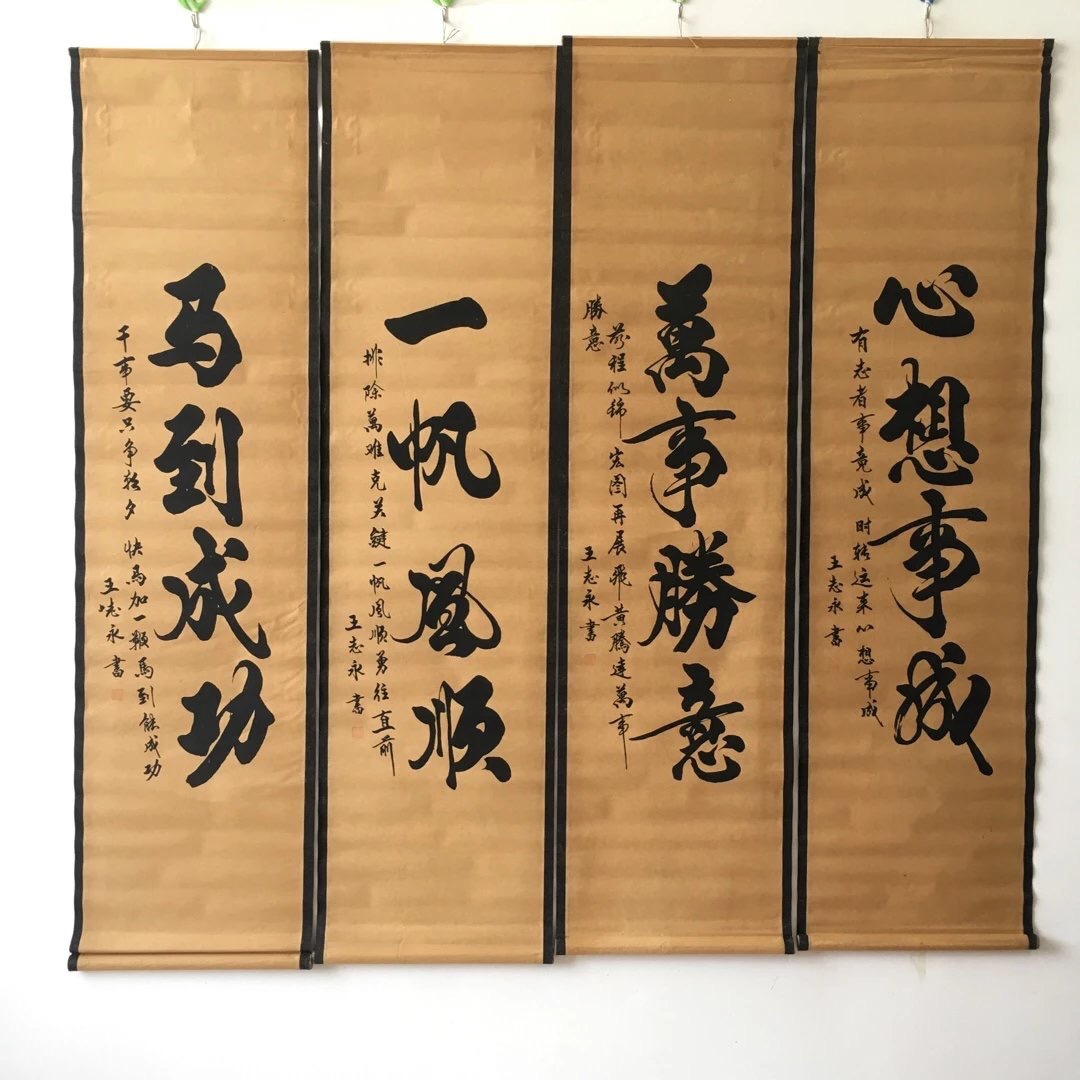 心想事成
有志者事竟成 时转运来心想事成
王志永書
萬事勝意
前程似锦 宏图再展飛黄腾達萬事
勝意
王志永書
一帆風顺
排除萬难克关键一帆風顺勇往直前
王志永書
马到成功
干事要只争朝夕 快馬加一鞭馬到能成功
王志永書